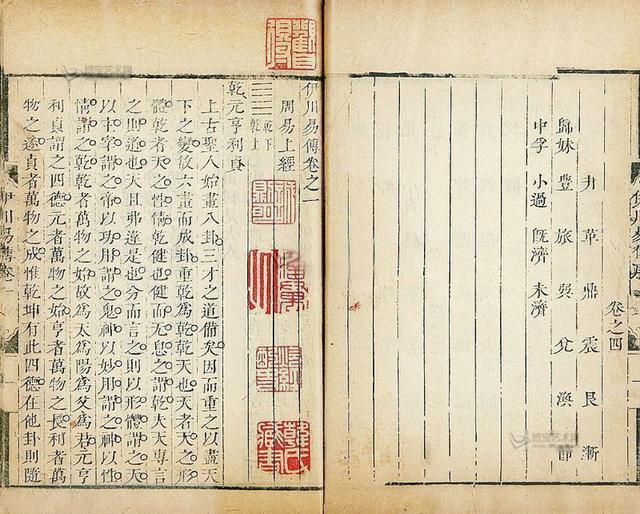 卷之四
井 革 鼎 震 艮 漸
歸妹 豐 旅 巽 兌 渙 節
中孚 小過 旣濟 未濟
伊川易傳卷之一
周易上經
乾下
乾上
乾元亨利貞
上古聖人始畫八卦三才之道備矣因而重之以盡天
下之變故六畫而成卦重乾爲乾乾天也天者天之形
體乾者天之性情乾健也健而无息之謂乾夫天專言
之則道也天且弗違是也分而言之則以形體謂之天
以主宰謂之帝以功用謂之鬼神以妙用謂之神以性
情謂之乾乾者萬物之始故爲天爲陽爲父爲君元亨
利貞謂之四德元者萬物之始亨者萬物之長利者萬
物之遂貞者萬物之成惟乾坤有此四德在他卦則隨
伊川易傳卷一
博宝艺术网